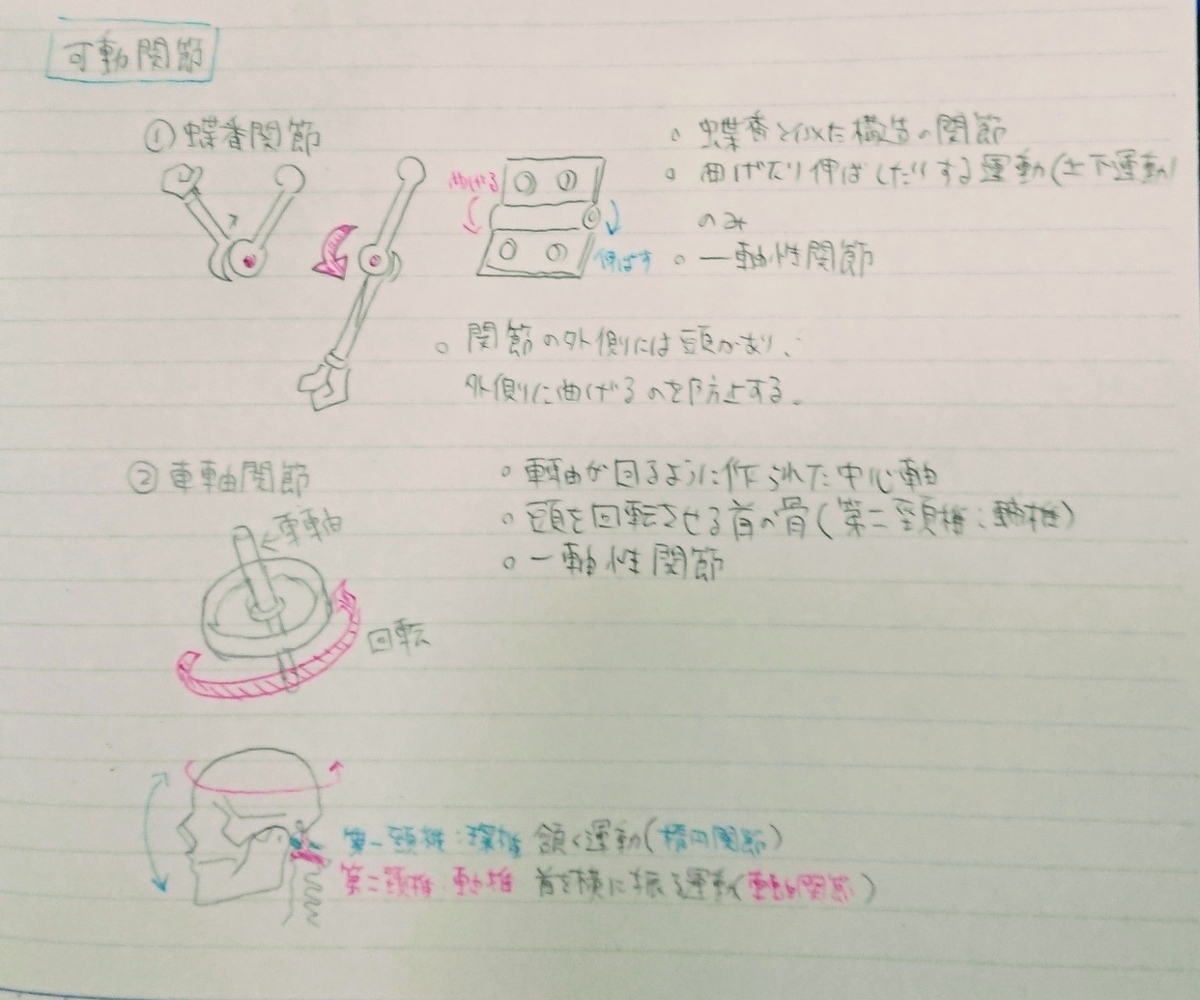 可動関節
①蝶番関節
曲げる
伸ばす
。蝶番と似た構造の関節
。曲げたり伸ばしたりする運動(上下運動)
のみ
。一軸性関節
。関節の外側には頭があり、
外側に曲げるのを防止する。
②車軸関節
車軸
回転
。車軸が回るように作られた中心軸
。頭を回転させる首の骨(第二頚椎:軸椎)
。一軸性関節
第一頚椎:環椎 頷く運動(楕円関節)
第二頚椎 軸椎 首を横に振る運動(車軸関節)